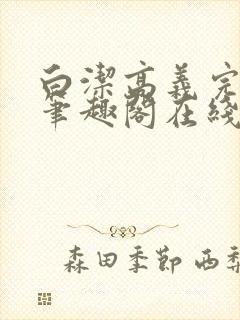 白潔高義完
筆趣閣在綫
森田季節 西梨